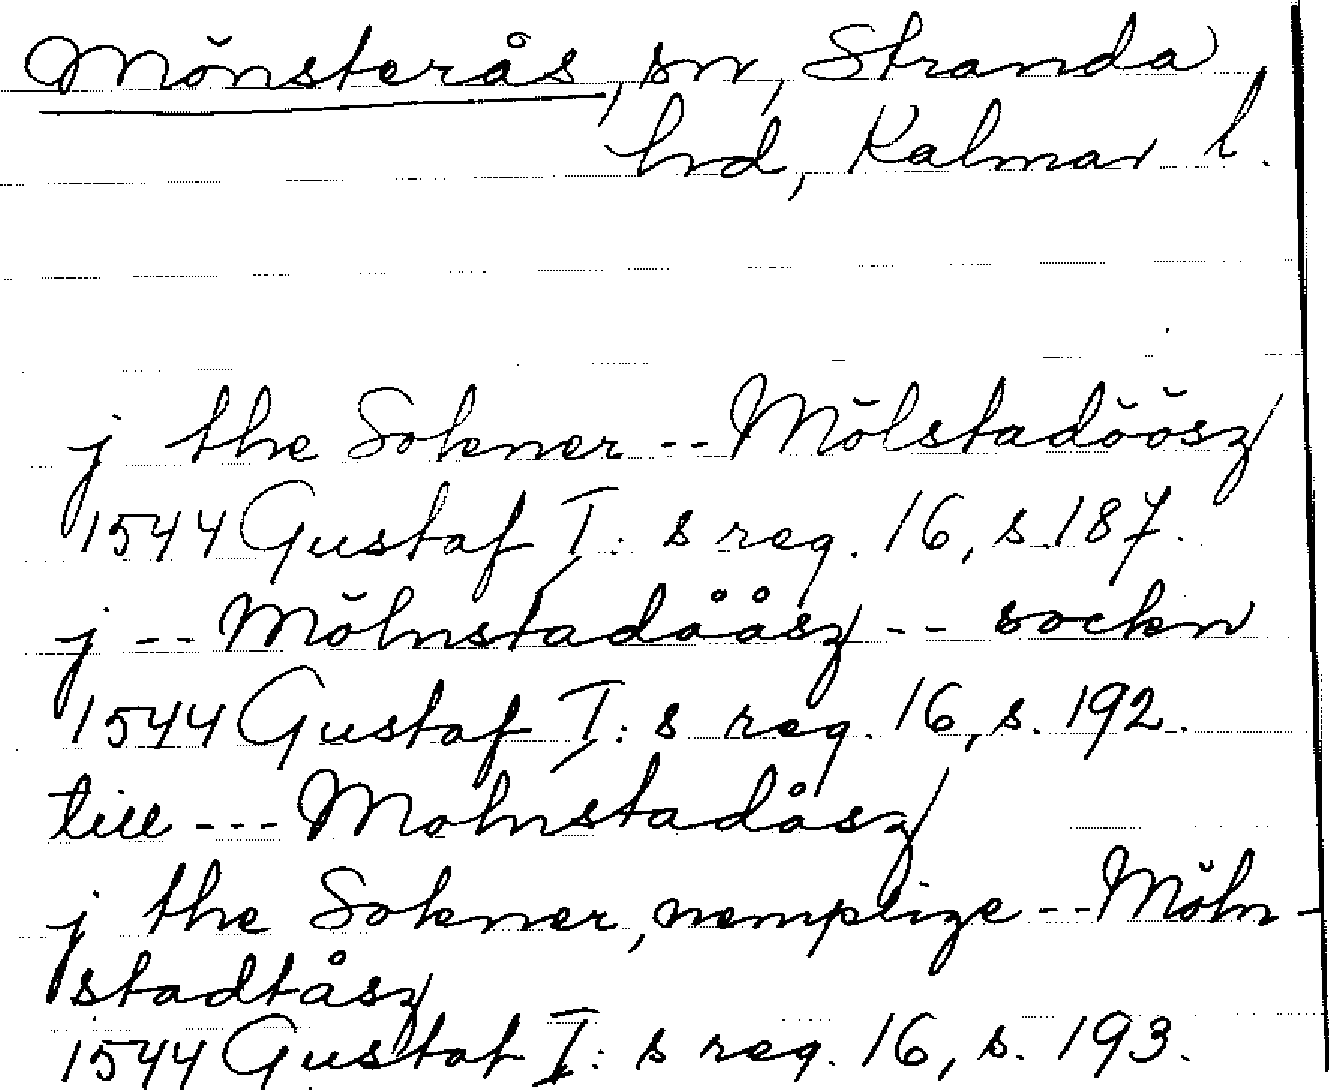 Mönsterås, sn, Stranda
hrd, Kalmar l.
j the Sokner -- Mölstadöösz
1544 Gustaf I: s reg. 16, s. 187.
j -- Mölnstadååsz -- sockn
1544 Gustaf I: s reg. 16, s. 192.
till --- Molnstadåsz
j the Sokner, nemplige -- Möln-
stadtåsz
1544 Gustaf I: s reg. 16, s. 193.